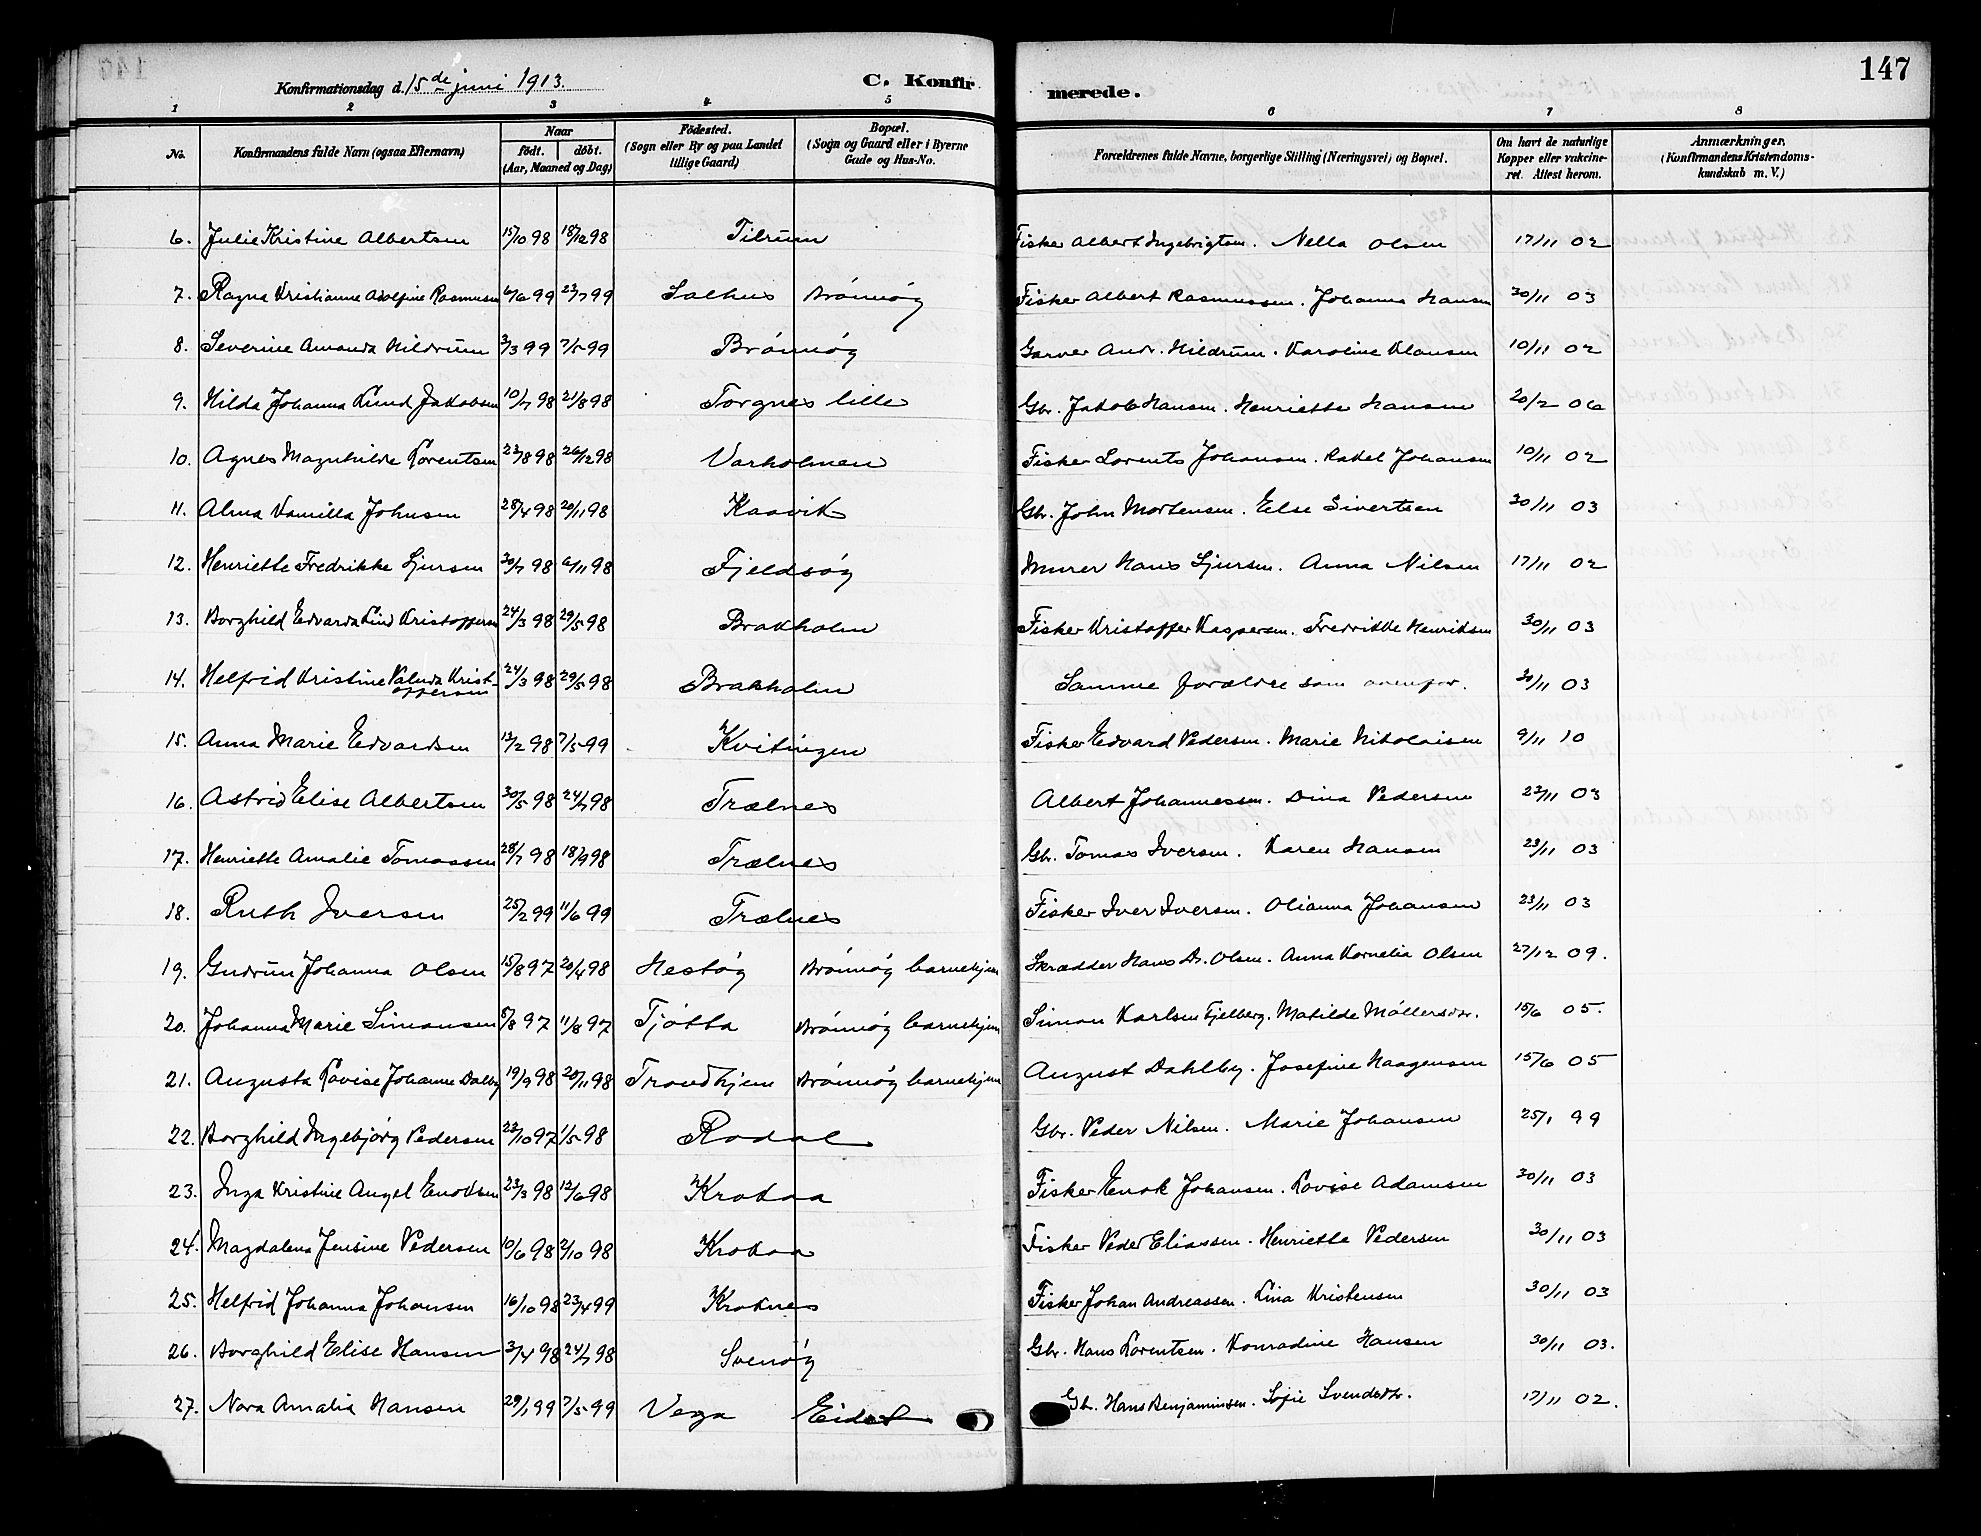 147
Konfirmationsdag d. 15de juni 1913.
C. Konfir
merede.
1 2 3 4 5 6 7 8
No.
Konfirmandens fulde Navn (ogsaa Efternavn)
Naar
födt. döbt.
(Aar, Maaned og Dag)
Födested.
(Sogn eller By og paa Landet
tillige Gaard)
Bopæl.
(Sogn og Gaard eller i Byerne
Gade og Hus-No.
Forældrenes fulde Navne, borgerlige Stilling (Næringsvei) og Bopæl.
Om havt de naturlige
Kopper eller vakcine-
ret. Attest herom.
Anmærkninger.
(Konfirmandens Kristendoms-
kundskab m. V.)
6. Julie Kristine Albertsen 15/10 98 18/12 98 Tilrum Fisker Albert Ingebrigtsen. Nella Olsen 17/11 02
7. Ragna Kristianne Adolfine Rasmussen 6/6 99 23/7 99 Salhus Brönnög Fisker Albert Rasmussen. Johanna Hansen 30/11 03
8. Severine Amanda Hildrum 3/3 99 7/5 99 Brönnög Garver Andr. Hildrum. Karoline Klausen 10/11 02
9. Hilda Johanna Lund Jakobsen 10/7 98 21/8 98 Torgnes lille Gbr. Jakob Hansen. Henriette Hansen 20/2 06
10. Agnes Magnhilde Lorentsen 23/8 98 26/12 98 Varholmen Fisker Lorents Johansen. Rakel Johansen 10/11 02
11. Alma Kamilla Johnsen 28/4 98 20/11 98 Kaavik Gbr. John Mortensen. Else Sivertsen 30/11 03
12. Henriette Fredrikke Sjursen 30/7 98 6/11 98 Fjeldsög Murer Hans Sjursen. Anna Nilsen 17/11 02
13. Borghild Edvarda Lind Kristoffersen 24/3 98 29/5 98 Brakholm Fisker Kristoffer Kaspersen. Fredrikke Henriksen 30/11 03
14. Helfrid Kristine Valuda Krist-
offersen 24/3 98 29/5 98 Brakholm Samme forældre som ovenfor. 30/11 03
15. Anna Marie Edvardsen 13/2 98 7/5 99 Kvitingen Fisker Edvard Pedersen. Marie Nikolaisen 9/11 10
16. Astrid Elise Albertsen 30/5 98 24/7 98 Trælnes Albert Johannessen. Dina Pedersen 23/11 03
17. Henriette Amalie Tomassen 28/7 98 18/9 98 Trælnes Gbr. Tomas Iversen. Karen Hansen 23/11 03
18. Ruth Iversen 25/2 99 11/6 99 Trælnes Fisker Iver Iversen. Olianna Johansen 23/11 03
19. Gudrun Johanna Olsen 15/8 97 20/4 98 Hestög Brönnög barnehjem Skrædder Hans A. Olsen. Anna Kornelia Olsen 27/12 09.
20. Johanna Marie Simonsen 5/8 97 11/8 97 Tjötta Brönnög barnehjem Simon Karlsen Fjelberg. Matilde Möllersdtr. 15/6 05.
21. Augusta Lovise Johanne Dalby 19/9 98 20/11 98 Trondhjem Brönnög barnehjem August Dahlby. Josefine Haagensen 15/6 05
22. Borghild Ingebjörg Pedersen 23/10 97 1/5 98 Rodal Gbr. Peder Nilsen. Marie Johansen 25/1 99
23. Inga Kristine Angel Enoksen 23/3 98 12/6 98 Krokaa Fisker Enok Johansen. Lovise Adamsen 30/11 03
24. Magdalena Jensine Pedersen 10/6 98 2/10 98 Krokaa Fisker Peder Eliassen. Henriette Pedersen 30/11 03
25. Helfrid Johanna Johansen 16/10 98 23/4 99 Kroknes Fisker Johan Andreassen. Lina Kristensen 30/11 03
26. Borghild Elise Hansen 3/4 98 24/7 98 Svenög Gbr. Hans Lorentsen. Konradine Hansen 30/11 03.
27. Nora Amalia Hansen 29/1 99 7/5 99 Vega Eidet Gbr. Hans Benjaminsen. Sofie Svendsdtr. 17/11 02.